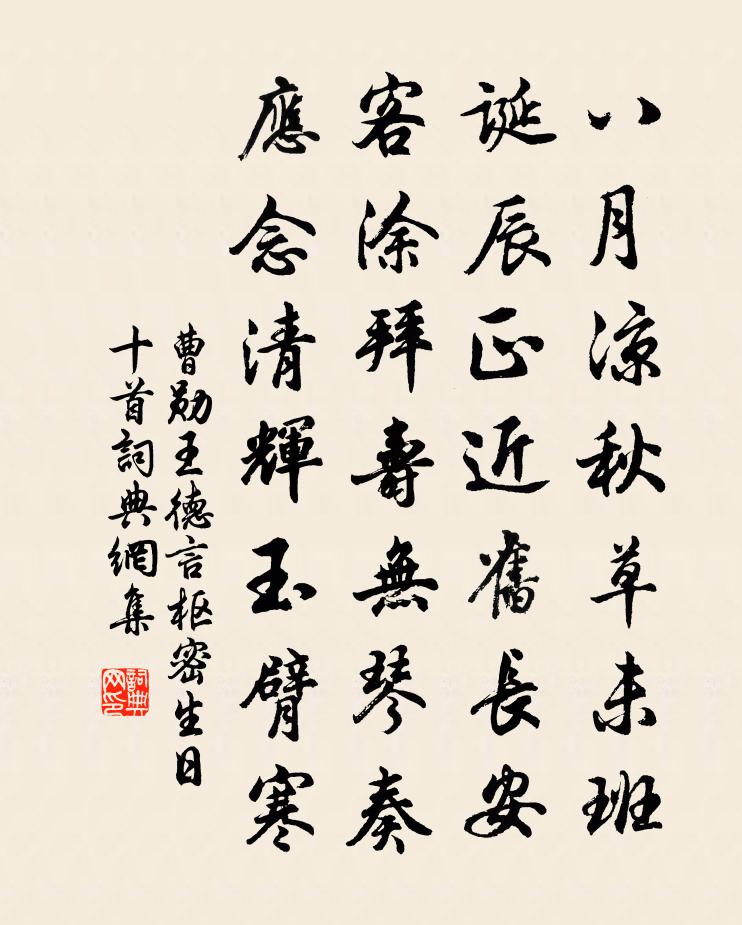 八月凉秋草未班
誕辰正近舊長安
客涂拜壽無琴奏
應念清輝玉臂寒
曹勛王德言枢密生日
十首詞典網集
詞典
网印